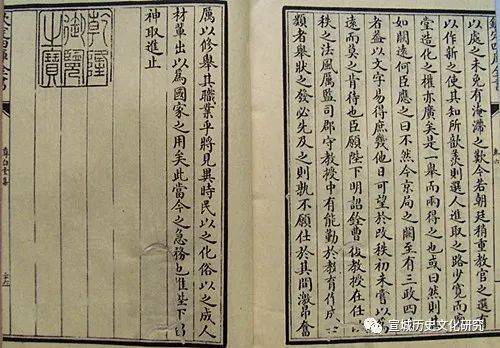 以處之未免有淹滯之歎今若朝廷稍重教官之選
以作新之使其知所歆羨則選人進取之路少寬而
堂造化之權亦廣矣是一舉而兩得之也或曰然則
如闕遠何臣應之曰不然今京局之闕至有三政四
者益以文字易得庶幾他日可望於改秩初未嘗以
遠而莫之肯待也臣願陛下明詔銓曹教授在任
秩之法風厲監司郡守教授中有能勤於教育作成
類者舉狀之發必先及之則孰不願仕於其間激昂奮
厲以修舉其職業乎將見異時民以之化俗以之成人
材輩出以為國家之用矣此當今之急務也惟陛下
神取進止
乾隆御覽之寶
欽定四庫全書
宣城历史文化研究